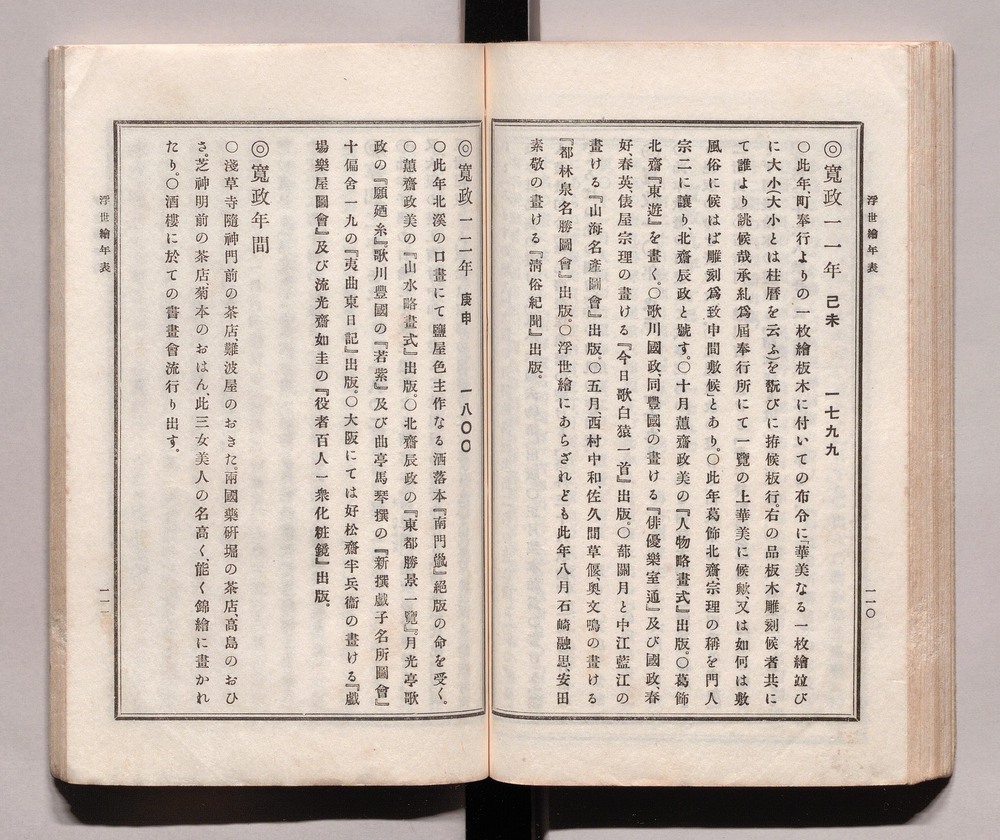 浮世繪年表
一一〇
◎寬政一一年 己未 一七九九
〇此年、町奉行よりの一枚繪板木に付いての布令に「華美なる一枚繪竝び
に大小(大小とは柱曆を云ふ)を翫びに拵候板行。右の品板木雕刻候者共に
て誰より誂候哉承糺爲屆奉行所にて一覽の上華美に候歟、又は如何は敷
風俗に候はば雕刻爲致申間敷候」とあり。〇此年葛飾北齋、宗理の稱を門人
宗二に讓り、北齋辰政と號す。〇十月蕙齋政美の『人物略畫式』出版。〇葛飾
北齋『東遊』を畫く。〇歌川國政、同豐國、の畫ける『俳優樂室通』及び國政、春
好、春英、俵屋宗理の畫ける『今日歌白猿一首』出版。〇蔀關月と中江藍江の
畫ける『山海名產圖會』出版。〇五月、西村中和、佐久間草偃、奧文鳴の畫ける
『都林泉名勝圖會』出版。〇浮世繪にあらざれども此年八月石崎融思、安田
素敬の畫ける『淸俗紀聞』出版。
◎寬政一二年 庚申 一八〇〇
〇此年北溪の口畫にて鹽屋色主作なる洒落本『南門鼠』絕版の命を受く。
〇蕙齋政美の『山水略畫式』出版。〇北齋辰政の『東都勝景一覽』月光亭歌
政の『願廼糸』歌川豐國の『若紫』及び曲亭馬琴撰の『新撰戲子名所圖會』
十偏舍一九の『夷曲東日記』出版。〇大阪にては好松齋半兵衞の畫ける『戲
場樂屋圖會』及び流光齋如圭の『役者百人一衆化粧鏡』出版。
◎寬政年間
〇淺草寺隨神門前の茶店、難波屋のおきた、兩國藥硏堀の茶店、高島のおひ
さ。芝神明前の茶店、菊本のおはん此三女美人の名高く、能く錦繪に畫かれ
たり。〇酒樓に於ての書畫會流行り出す。
浮世繪年表
一一一